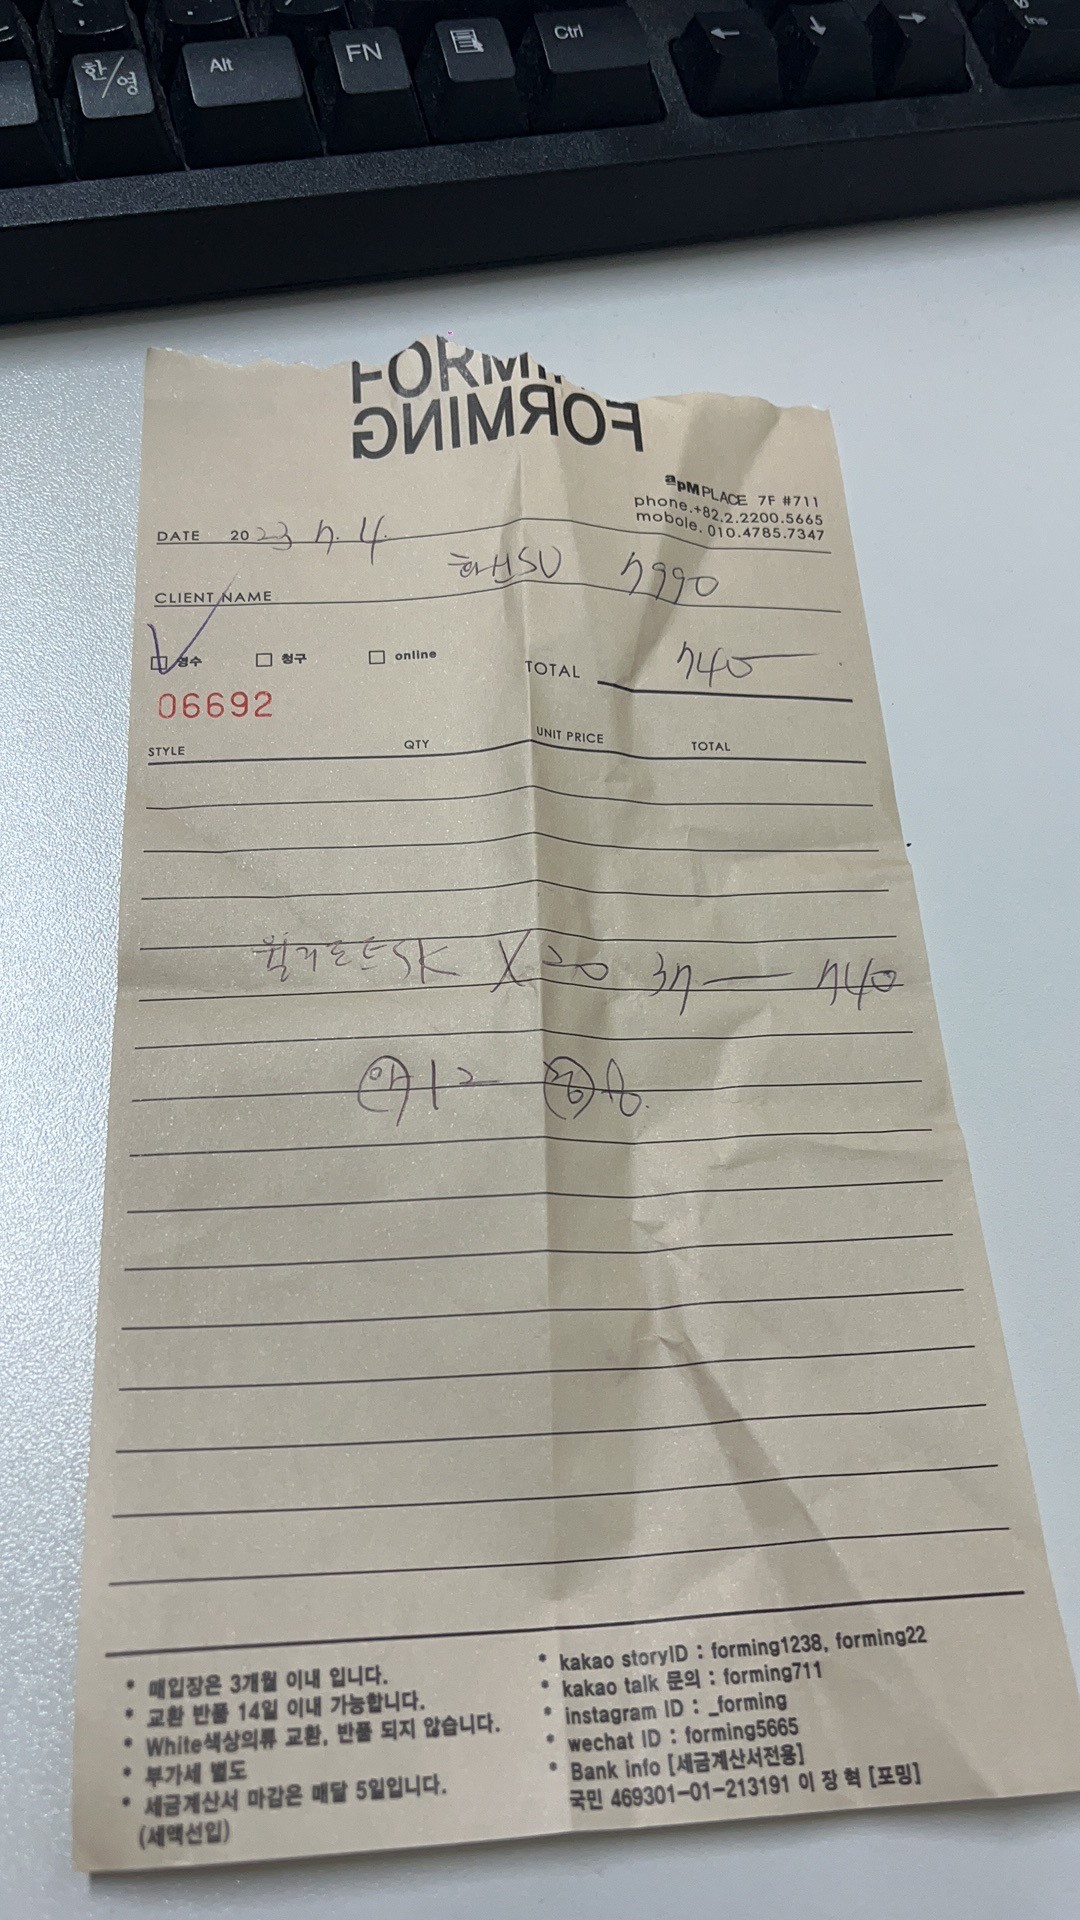 한/영
Alt
FN
Ctrl
←
↓
→
Ins
FORMING
FORMING
apM PLACE 7F #711
phone.+82.2.2200.5665
mobole. 010.4785.7347
DATE 2023 7. 4.
7990
CLIENT NAME
영수 청구 online
TOTAL 740
06692
STYLE QTY UNIT PRICE TOTAL
SK X 20 37 740
12 8.
* 매입장은 3개월 이내 입니다.
* 교환 반품 14일 이내 가능합니다.
* White색상의류 교환, 반품 되지 않습니다.
* 부가세 별도
* 세금계산서 마감은 매달 5일입니다.
(세액선입)
* kakao storyID : forming1238, forming22
* kakao talk 문의 : forming711
* instagram ID : _forming
* wechat ID : forming5665
* Bank info [세금계산서전용]
국민 469301-01-213191 이 장 혁 [포밍]